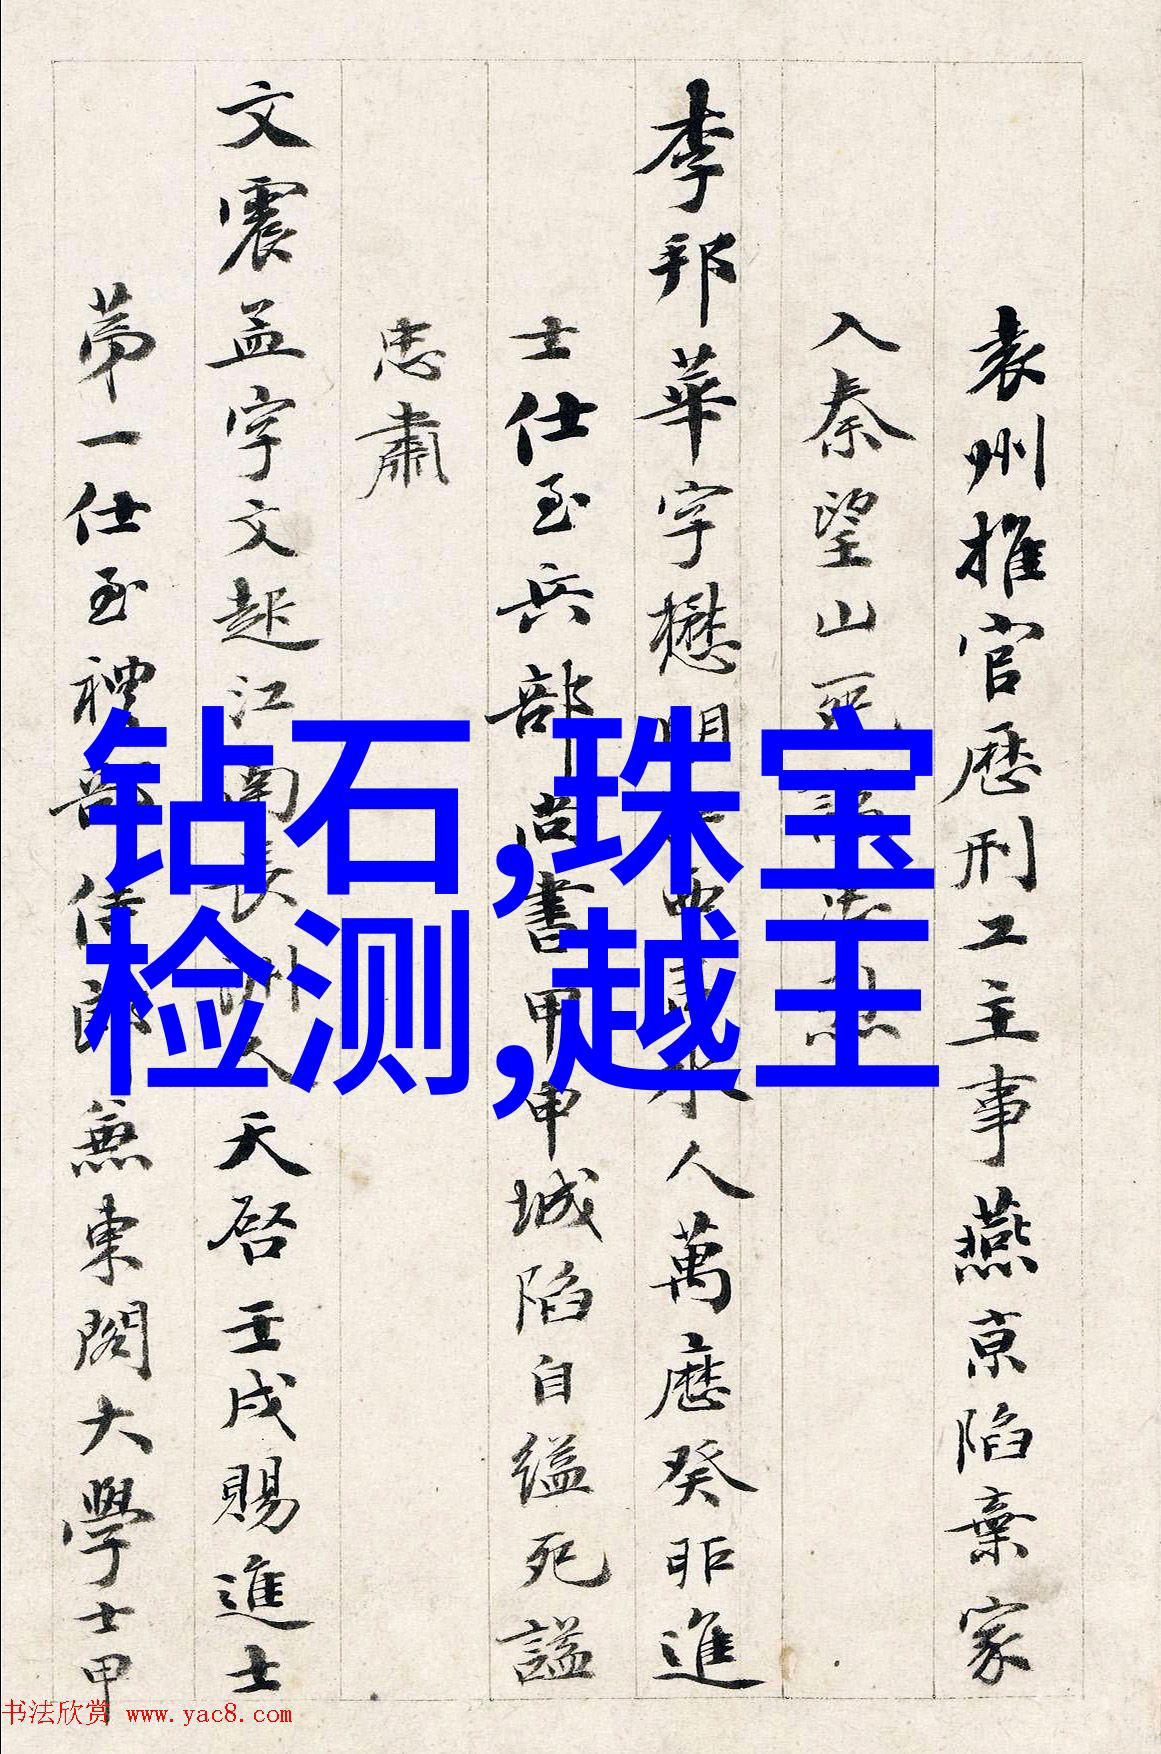 袁州推官歷刑工主事燕京陷棄家
入秦望山死
李邦華字懋明 人萬曆癸卯進
士仕至兵部尚書甲申城陷自縊死謚
忠肅
文震孟字文起江南長洲人天啓壬戌賜進士
第一仕至禮部侍郎兼東閣大學士甲
钻石,珠宝
检测,越王
书法欣赏 www.yac8.com